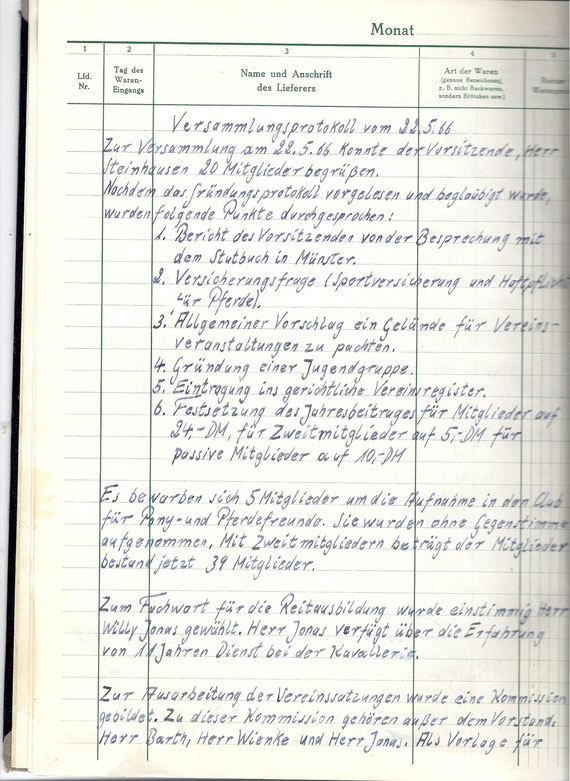 Monat
1 2 3 4 5
Lfd.
Nr.
Tag des
Waren-
Eingangs
Name und Anschrift
des Lieferers
Art der Waren
(genaue Bezeichnung,
z. B. nicht Backwaren,
sondern Brötchen usw.)
Versammlungsprotokoll vom 22.5.66
Zur Versammlung am 22.5.66 konnte der Vorsitzende, Herr
Steinhausen 20 Mitglieder begrüßen.
Nachdem das Gründungsprotokoll vorgelesen und beglaubigt wurde,
wurden folgende Punkte durchgesprochen:
1. Bericht des Vorsitzenden von der Besprechung mit
dem Stutbuch in Münster.
2. Versicherungsfrage (Sportversicherung und Haftpflicht
für Pferde).
3. Allgemeiner Vorschlag ein Gelände für Vereins-
veranstaltungen zu pachten.
4. Gründung einer Jugendgruppe.
5. Eintragung ins gerichtliche Vereinsregister.
6. Festsetzung des Jahresbeitrages für Mitglieder auf
24,-DM, für Zweitmitglieder auf 5,-DM für
passive Mitglieder auf 10,-DM
Es bewarben sich 5 Mitglieder um die Aufnahme in den Club
für Pony- und Pferdefreunde. Sie wurden ohne Gegenstimme
aufgenommen. Mit Zweitmitgliedern beträgt der Mitglieder
bestand jetzt 39 Mitglieder.
Zum Fachwart für die Reitausbildung wurde einstimmig Herr
Willy Jonas gewählt. Herr Jonas verfügt über die Erfahrung
von 11 Jahren Dienst bei der Kavallerie.
Zur Ausarbeitung der Vereinssatzungen wurde eine Kommission
gebildet. Zu dieser Kommission gehören außer dem Vorstand.
Herr Barth, Herr Wienke und Herr Jonas. Als Vorlage für